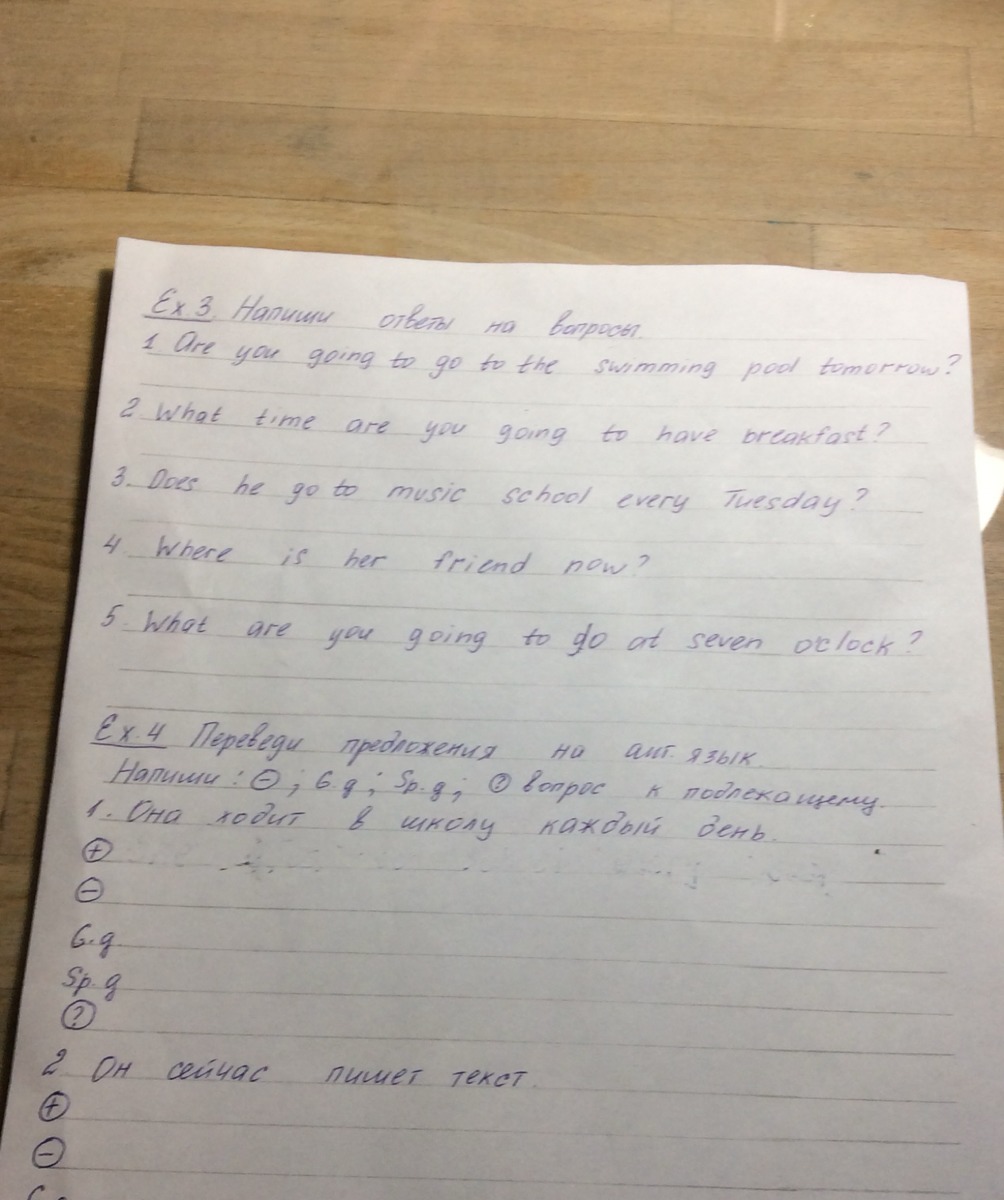 Ex 3. Напиши ответы на вопросы.
1 Are you going to go to the swimming pool tomorrow?
2 What time are you going to have breakfast?
3. Does he go to music school every Tuesday?
4 Where is her friend now?
5. What are you going to do at seven o'clock?
Ex. 4 Переведи предложения на анг. язык.
Напиши: ⊖; G.q; Sp.q; ? вопрос к подлежащему.
1. Она ходит в школу каждый день.
⊕
⊖
G.q
Sp.q
?
2 Он сейчас пишет текст.
⊕
⊖